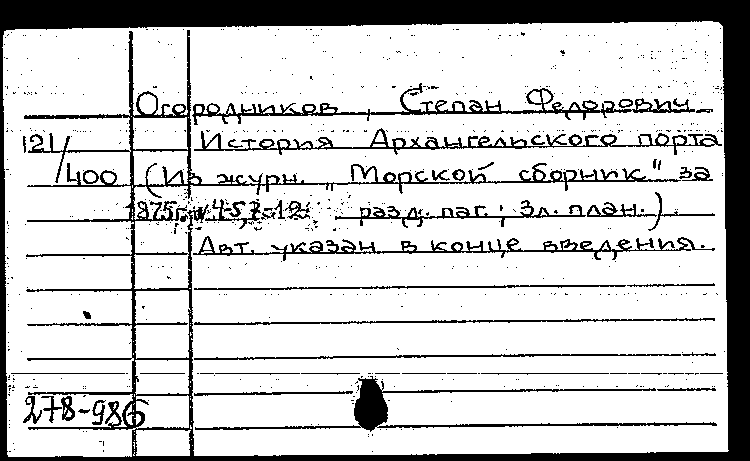 Огородников, Степан Федорович
121/400 История Архангельского порта
(Из журн. „Морской сборник" за
1875г. № 4-5, 7-12 разд. паг.; 3 л. план.).
Авт. указан в конце введения.
278-986